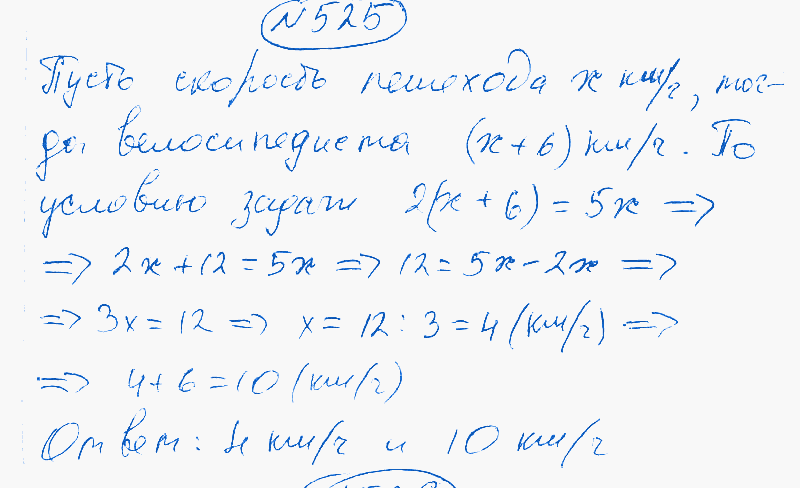 №525
Пусть скорость пешехода x км/ч, тог-
да велосипедиста (x+6) км/ч. По
условию задачи 2(x+6)=5x =>
=> 2x+12=5x => 12=5x-2x =>
=> 3x=12 => x=12:3=4 (км/ч) =>
=> 4+6=10 (км/ч)
Ответ: 4 км/ч и 10 км/ч